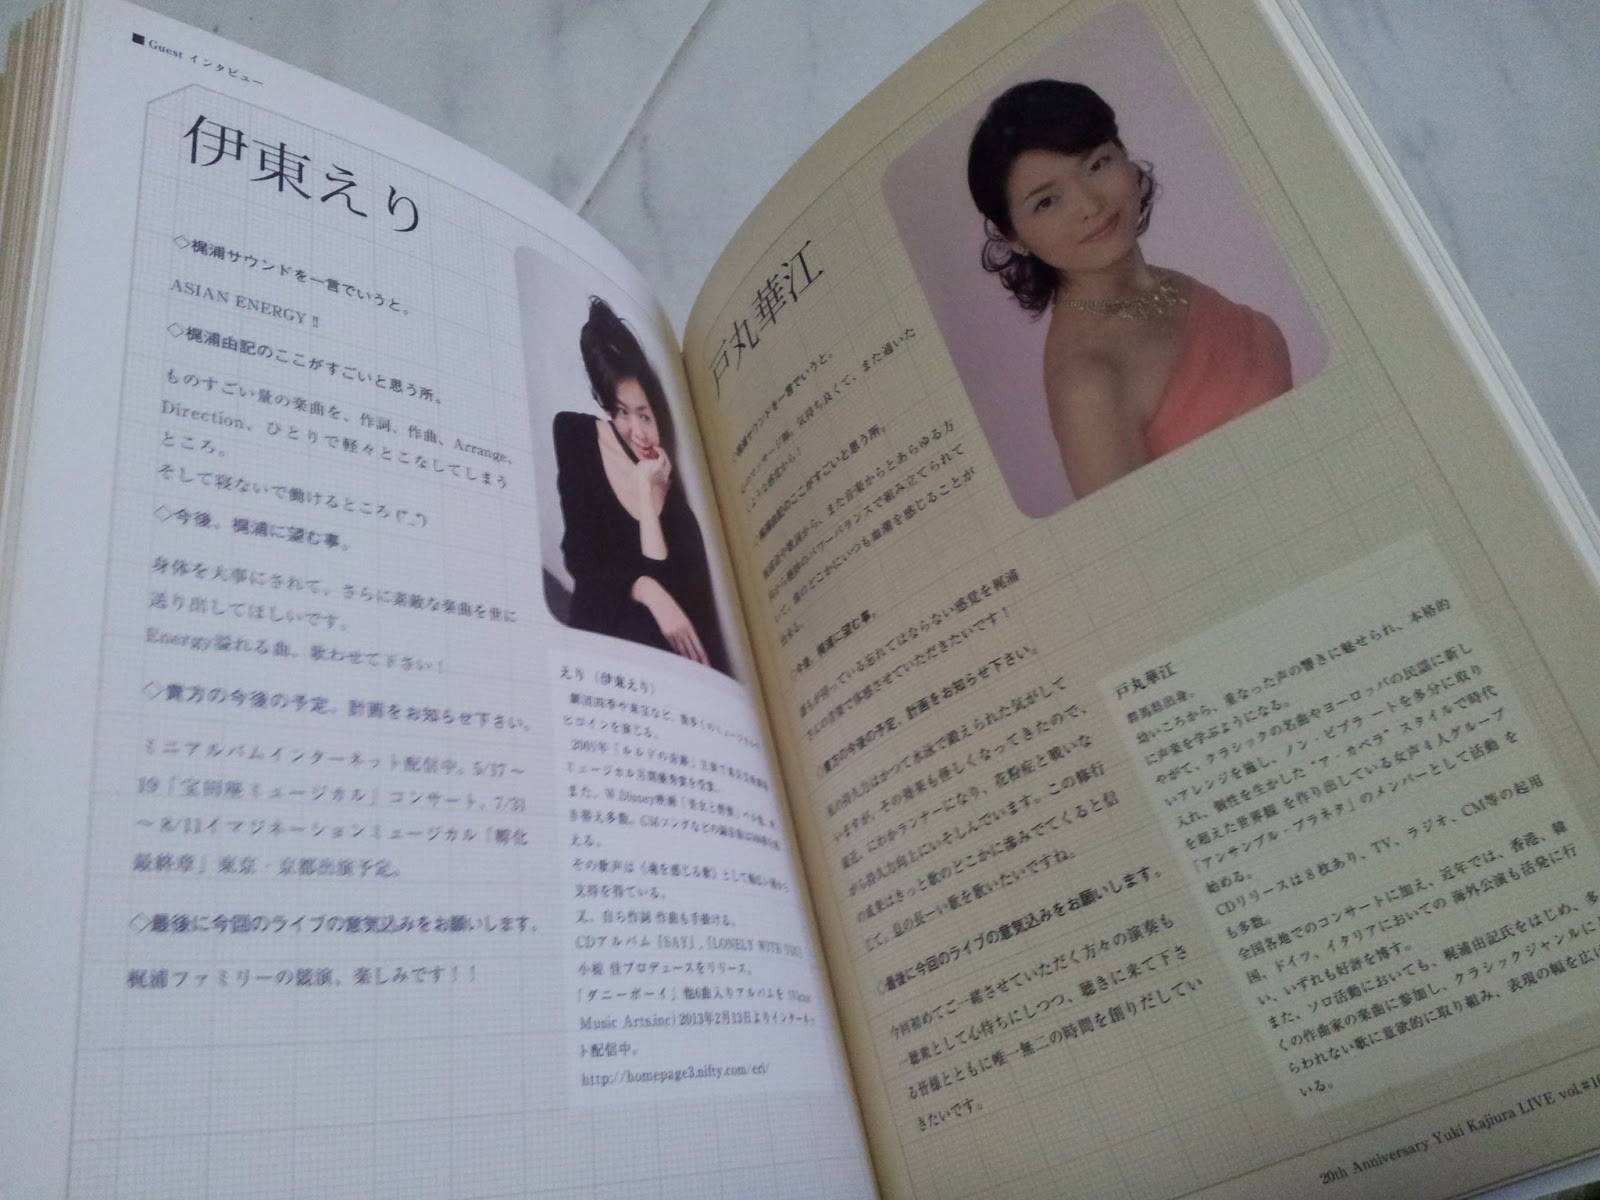 ■Guest インタビュー
伊東えり
◇梶浦サウンドを一言でいうと。
ASIAN ENERGY!!
◇梶浦由記のここがすごいと思う所。
ものすごい量の楽曲を、作詞、作曲、Arrange、
Direction、ひとりで軽々とこなしてしまう
ところ。
そして寝ないで働けるところ
◇今後、梶浦に望む事。
身体を大事にされて、さらに素敵な楽曲を世に
送り出してほしいです。
Energy溢れる曲、歌わせて下さい!
◇貴方の今後の予定、計画をお知らせ下さい。
ミニアルバムインターネット配信中。5/17~
19「宝田座ミュージカル」コンサート。7/31
~8/11イマジネーションミュージカル「孵化
最終章」東京・京都出演予定。
◇最後に今回のライブの意気込みをお願いします。
梶浦ファミリーの競演、楽しみです!!
えり(伊東えり)
ヒロインを演じる。
ミュージカル
また、W.Disney映画「美女と野獣」ベル役、
える。
その歌声は《魂を感じる歌》として幅広い層から
支持を得ている。
又、自ら作詞 作曲も手掛ける。
CDアルバム「SAY」,「LONELY WITH YOU」
小椋 佳プロデュースをリリース。
「ダニーボーイ」他6曲入りアルバムを
Music Arts.inc)2013年2月13日よりインターネッ
ト配信中。
http://homepage3.nifty.com/eri/
戸丸華江
◇梶浦サウンドを一言でいうと。
心のマッサージ師。気持ち良くて、また通いた
くなる感覚かも!
◇梶浦由記のここがすごいと思う所。
作曲法や歌詞から、また音楽からとあらゆる方
向から絶妙のパワーバランスで組み立てられて
いて、曲のどこかにいつも血潮を感じることが
出来る。
◇今後、梶浦に望む事。
誰もが持っている忘れてはならない感覚を梶浦
さんの音楽で体感させていただきたいです!
◇貴方の今後の予定、計画をお知らせ下さい。
私の持久力はかつて水泳で鍛えられた気がして
いますが、その効果も怪しくなってきたので、
最近、にわかランナーになり、花粉症と戦いな
がら持久力向上にいそしんでいます。この修行
の成果はきっと歌のどこかに滲みでてくると信
じて、息の長ーい歌を歌いたいですね。
◇最後に今回のライブの意気込みをお願いします。
今回初めてご一緒させていただく方々の演奏も
一聴衆として心待ちにしつつ、聴きに来て下さ
る皆様とともに唯一無二の時間を創りだしてい
きたいです。
戸丸華江
群馬県出身。
幼いころから、重なった声の響きに魅せられ、本格的
に声楽を学ぶようになる。
やがて、クラシックの名曲やヨーロッパの民謡に新し
いアレンジを施し、ノン・ビブラートを多分に取り
入れ、個性を生かした“ア・カペラ”スタイルで時代
を超えた世界観 を作り出している女声4人グループ
「アンサンブル・プラネタ」のメンバーとして活動 を
始める。
CDリリースは8枚あり、TV、ラジオ、CM等の起用
も多数。
全国各地でのコンサートに加え、近年では、香港、韓
国、ドイツ、イタリアにおいての 海外公演も活発に行
い、いずれも好評を博す。
また、ソロ活動においても、梶浦由記氏をはじめ、多
くの作曲家の楽曲に参加し、クラシックジャンルにと
らわれない歌に意欲的に取り組み、表現の幅を広げ
いる。
20th Anniversary Yuki Kajiura LIVE vol.#10